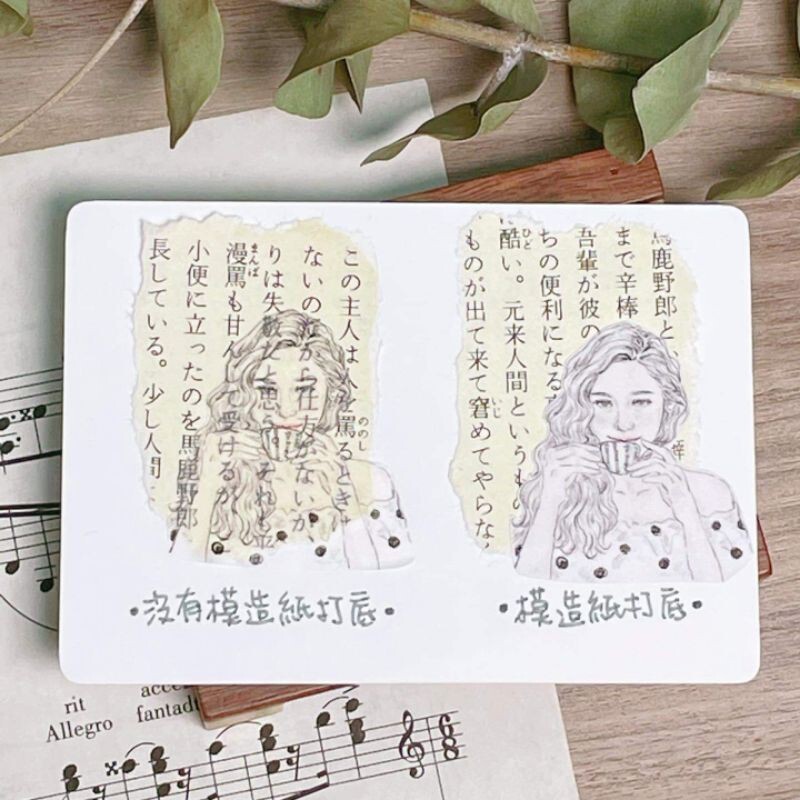 この主人は人を罵るときは
ののし
ないのだから仕方がないが
りは失敬だと思う。それも平
漫罵も甘んじて受けるが
まんば
小便に立ったのを馬鹿野郎
長している。少し人間
馬鹿野郎と
まで辛棒
吾輩が彼の
ちの便利になる
酷い。元来人間というもの
ひど
ものが出て来て窘めてやらな
いじ
•沒有模造紙打底•
•模造紙打底•
rit
Allegro
fantad